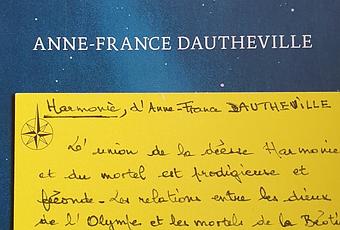 ANNE-FRANCE DAUTHEVILLE
Harmonie, d'Anne-France DAUTHEVILLE
L'union de la déesse Harmonie
et du mortel est prodigieuse et
féconde. Les relations entre les dieux
de l'Olympe et les mortels de la Béoti